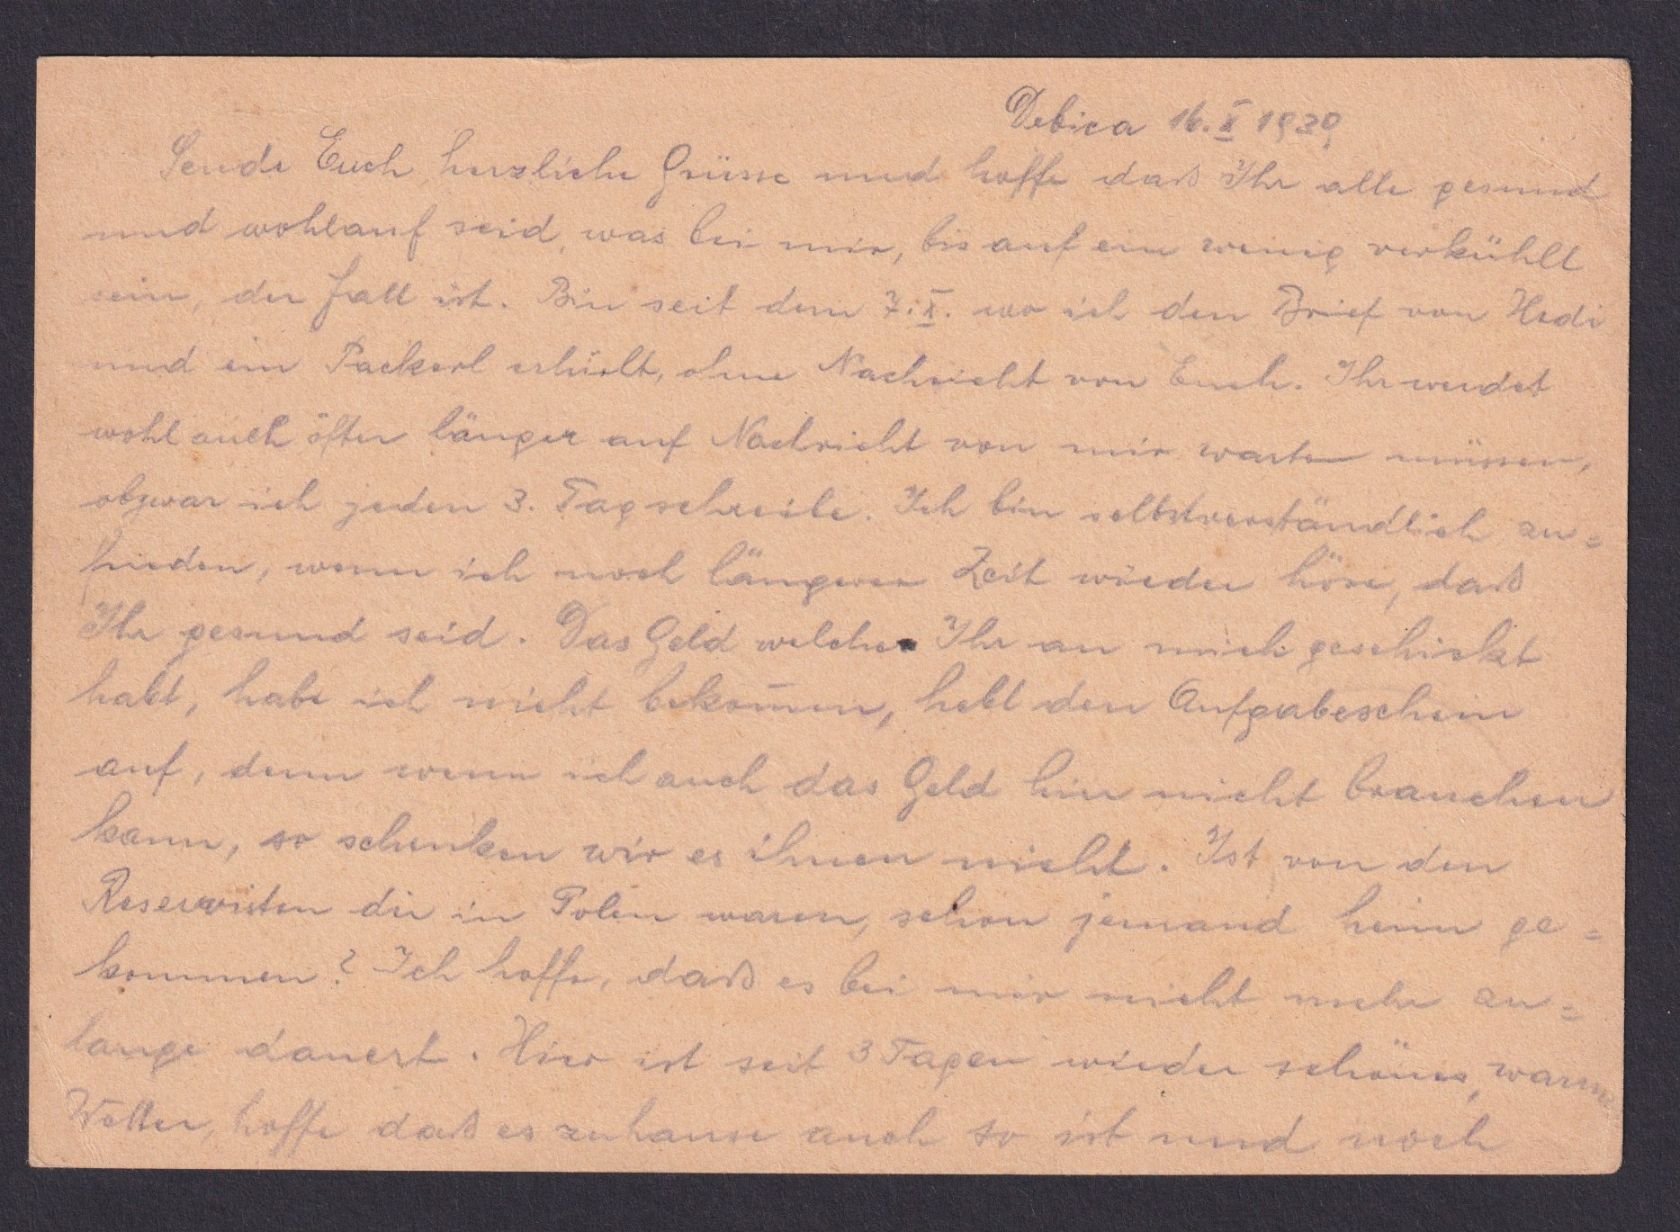 Debica 16. X 1939
Sende Euch herzliche Grüsse und hoffe daß Ihr alle gesund
und wohlauf seid, was bei mir, bis auf ein wenig verkühlt
sein, der Fall ist. Bin seit dem 7. X. wo ich den Brief von Hedi
und ein Packerl erhielt, ohne Nachricht von Euch. Ihr werdet
wohl auch öfter länger auf Nachricht von mir warten müssen,
obzwar ich jeden 3. Tag schreibe. Ich bin selbstverständlich zu=
frieden, wenn ich nach längerer Zeit wieder höre, daß
Ihr gesund seid. Das Geld welches Ihr an mich geschickt
habt, habe ich nicht bekom̄en, hebt den Aufgabeschein
auf, denn wenn ich auch das Geld hier nicht brauchen
kann, so schenken wir es ihnen nicht. Ist von den
Reservisten die in Polen waren, schon jemand heim ge=
kommen? Ich hoffe, daß es bei mir nicht mehr zu=
lange dauert. Hier ist seit 3 Tagen wieder schönes, warmes
Wetter, hoffe daß es zuhause auch so ist und noch